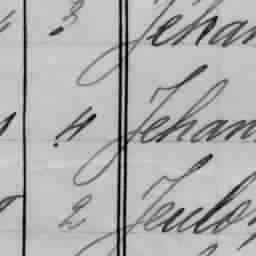 3 Jehan
4 Jehan
2 Jeulo